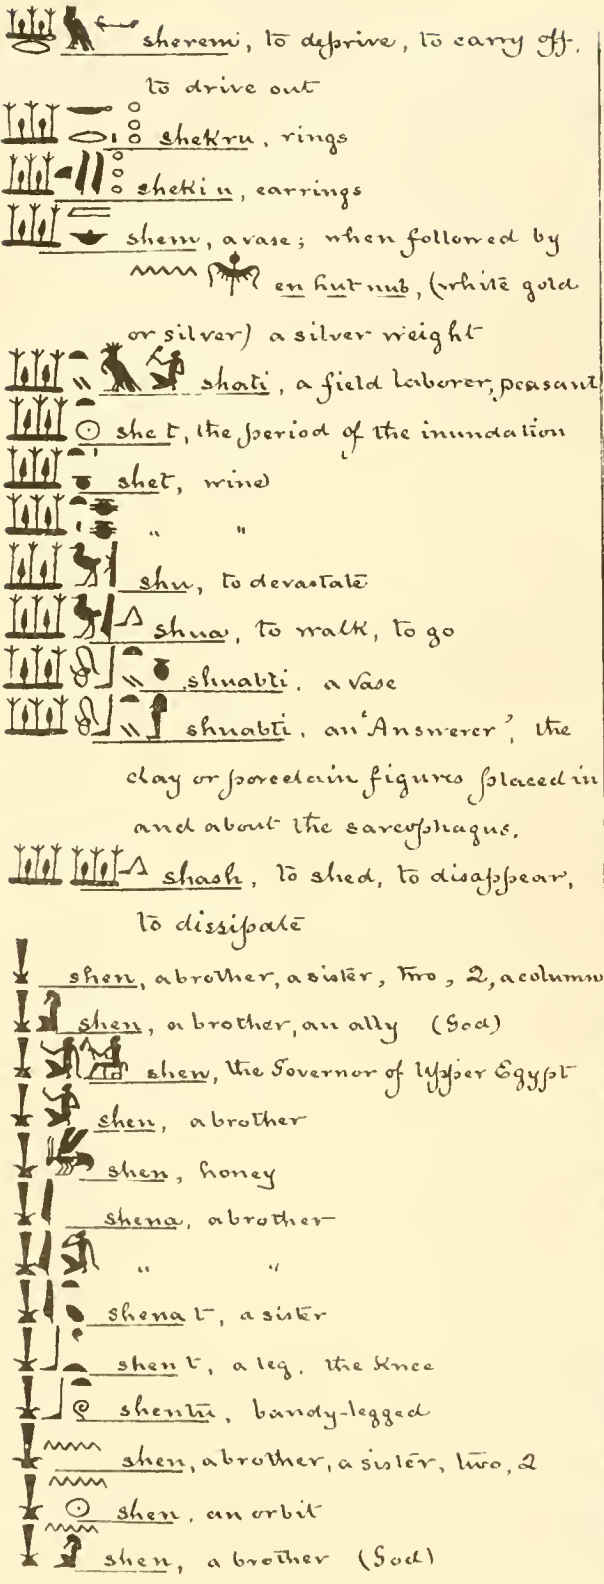 sheremi, to deprive, to carry off,
to drive out
shekru, rings
shekiu, earrings
shem, a vase; when followed by
en hut nub, (white gold
or silver) a silver weight
shati, a field laborer, peasant
she t, the period of the inundation
shet, wine
" "
shu, to devastate
shua, to walk, to go
shuabti, a vase
shuabti, an "Answerer", the
clay or porcelain figures placed in
and about the sarcophagus.
shash, to shed, to disappear,
to dissipate
shen, a brother, a sister, two, 2, a column
shen, a brother, an ally (God)
shen, the Governor of Upper Egypt
shen, a brother
shen, honey
shena, a brother
" "
shena t, a sister
shen t, a leg, the knee
shentu, bandy-legged
shen, a brother, a sister, two, 2
shen, an orbit
shen, a brother (God)